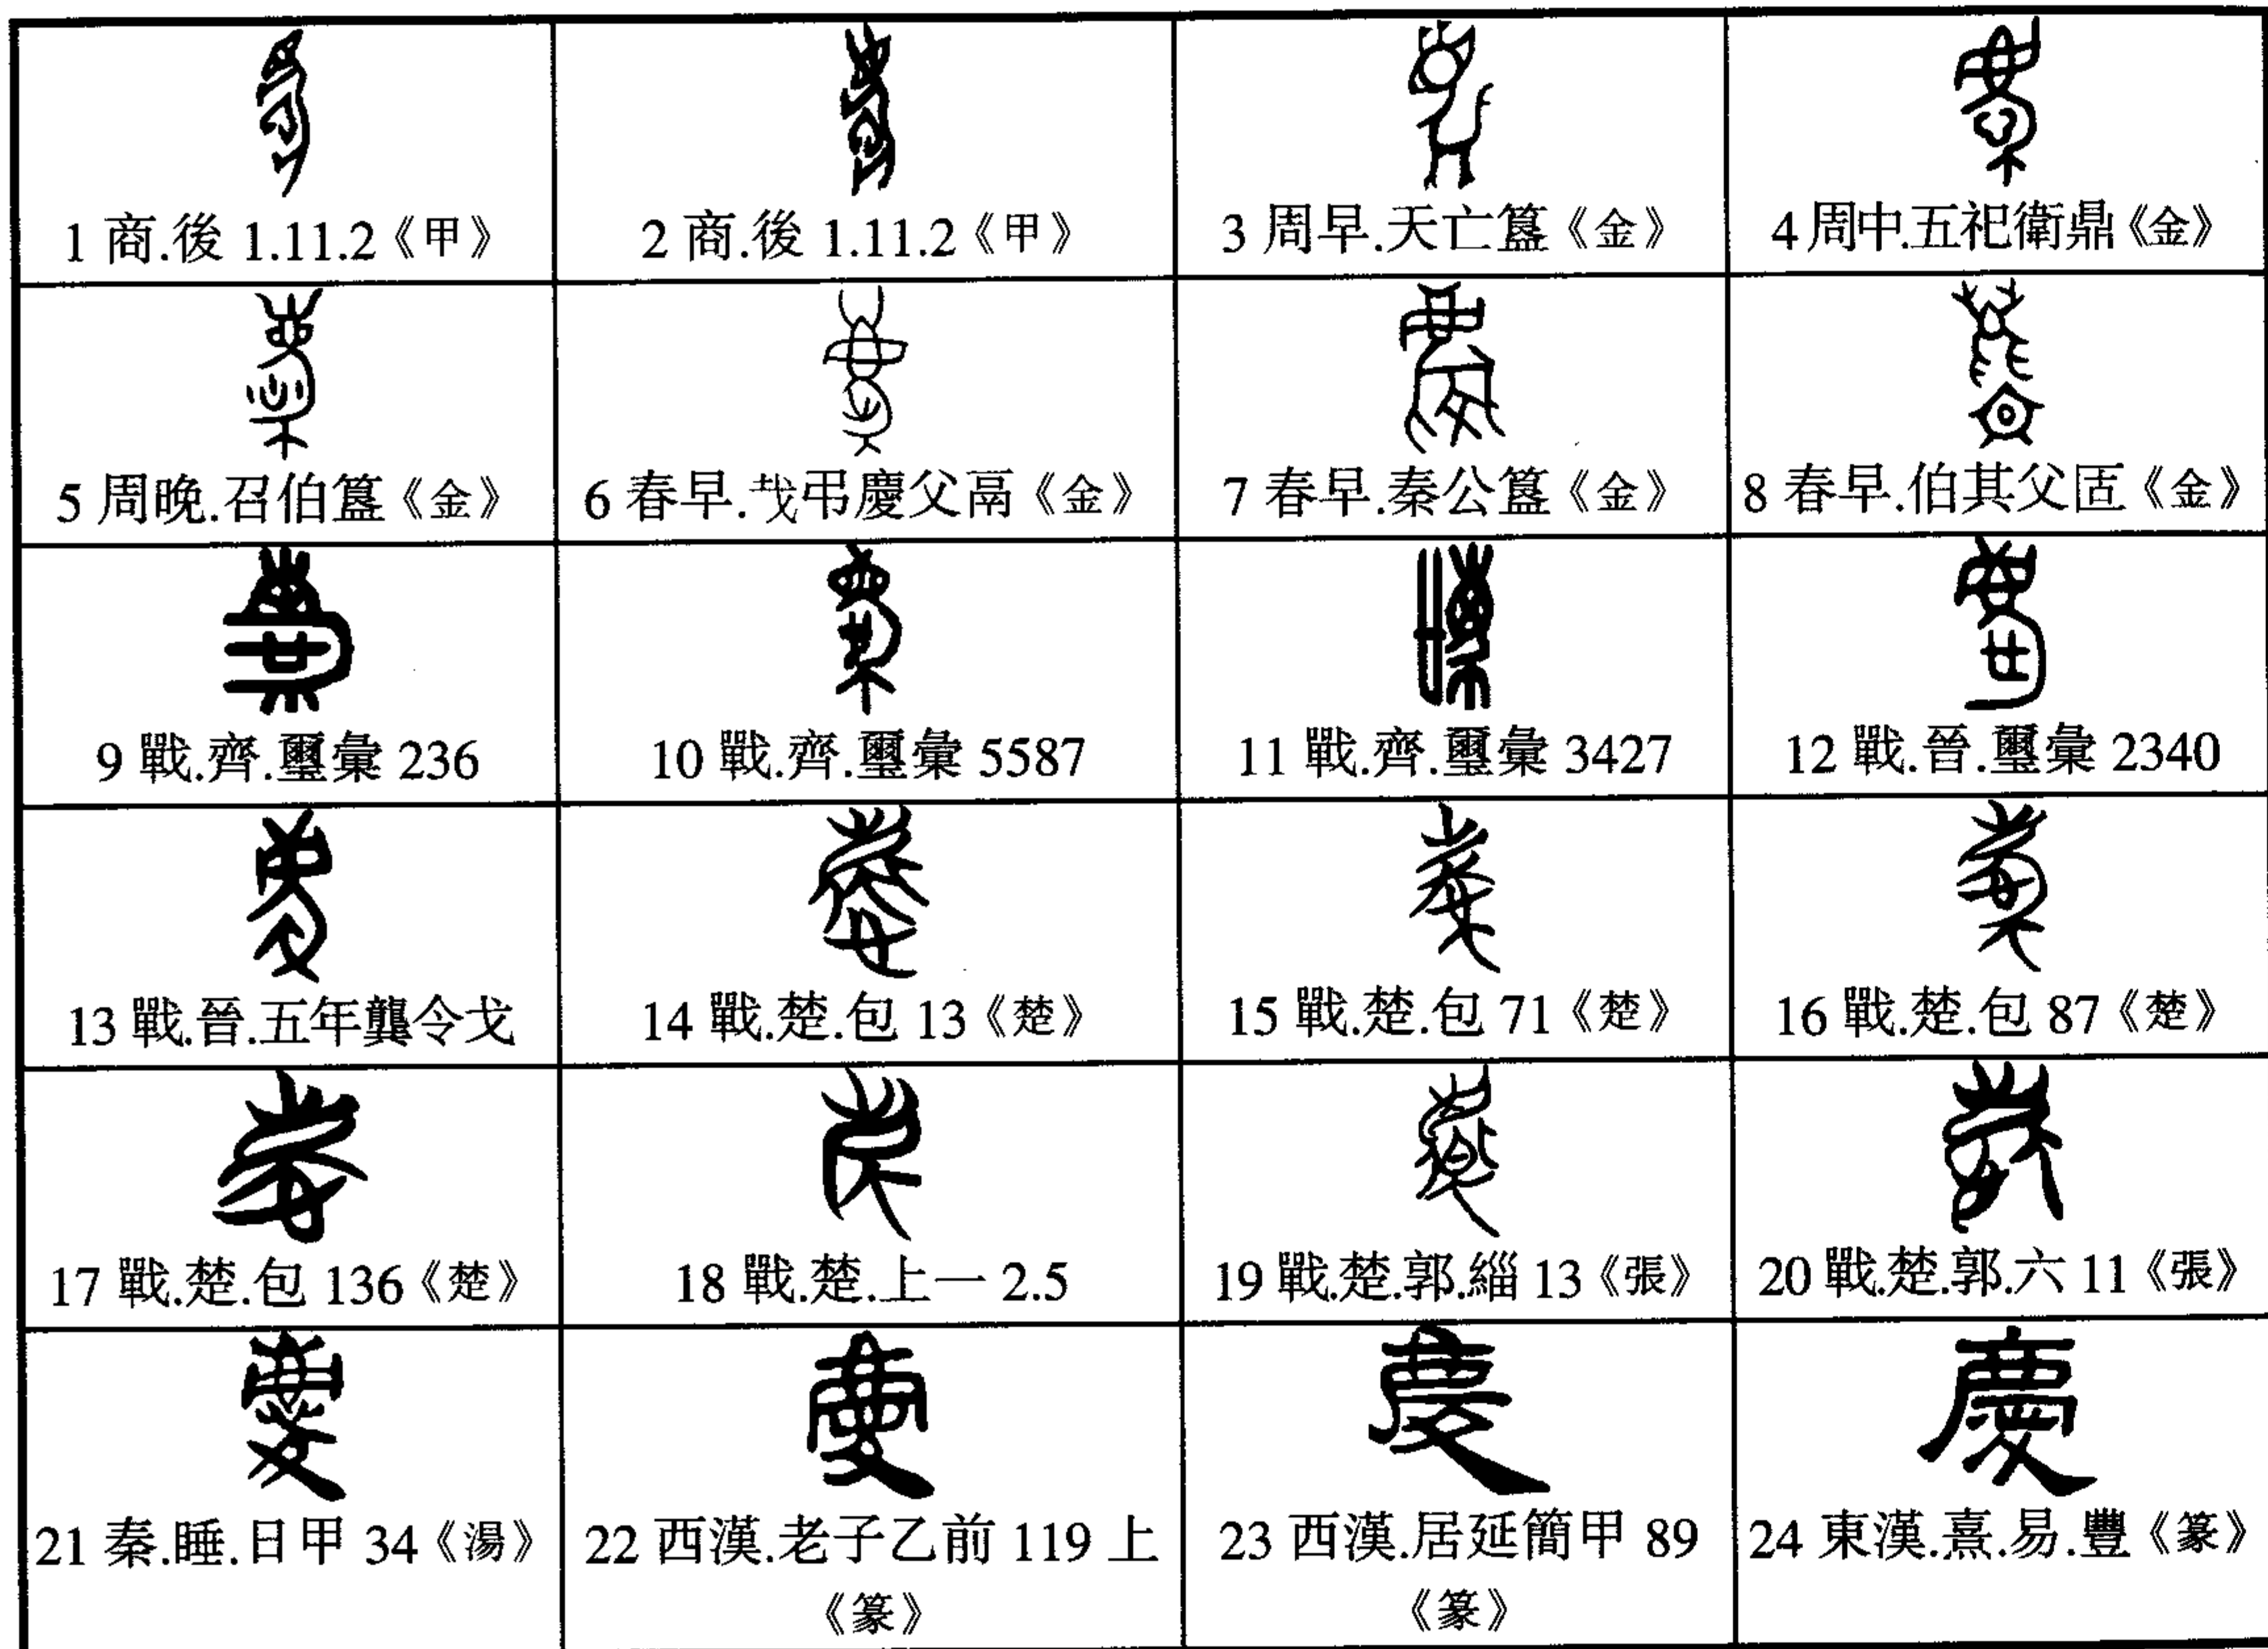 1 商.後 1.11.2《甲》
2 商.後 1.11.2《甲》
3 周早.天亡簋《金》
4 周中.五祀衛鼎《金》
5 周晚.召伯簋《金》
6 春早.𢦏弔慶父鬲《金》
7 春早.秦公簋《金》
8 春早.伯其父匼《金》
9 戰.齊.璽彙 236
10 戰.齊.璽彙 5587
11 戰.齊.璽彙 3427
12 戰.晉.璽彙 2340
13 戰.晉.五年龔令戈
14 戰.楚.包 13《楚》
15 戰.楚.包 71《楚》
16 戰.楚.包 87《楚》
17 戰.楚.包 136《楚》
18 戰.楚.上一 2.5
19 戰.楚.郭.緇 13《張》
20 戰.楚.郭.六 11《張》
21 秦.睡.日甲 34《湯》
22 西漢.老子乙前 119 上
《篆》
23 西漢.居延簡甲 89
《篆》
24 東漢.熹.易.豐《篆》